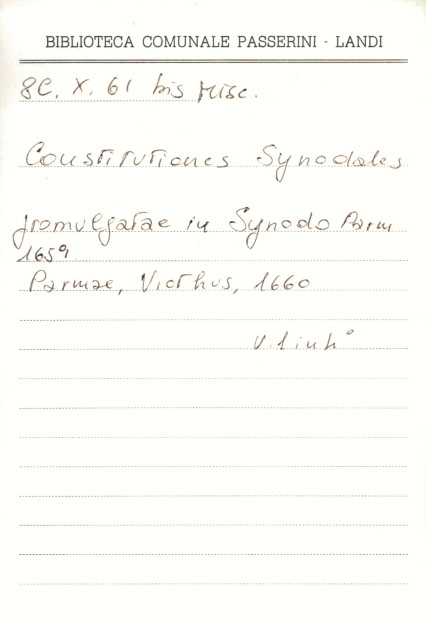 BIBLIOTECA COMUNALE PASSERINI - LANDI
8C. X. 61 bis Misc.
Constitutiones Synodales
promulgatae in Synodo Parm
1659
Parmae, Viothus, 1660
V. 1 in